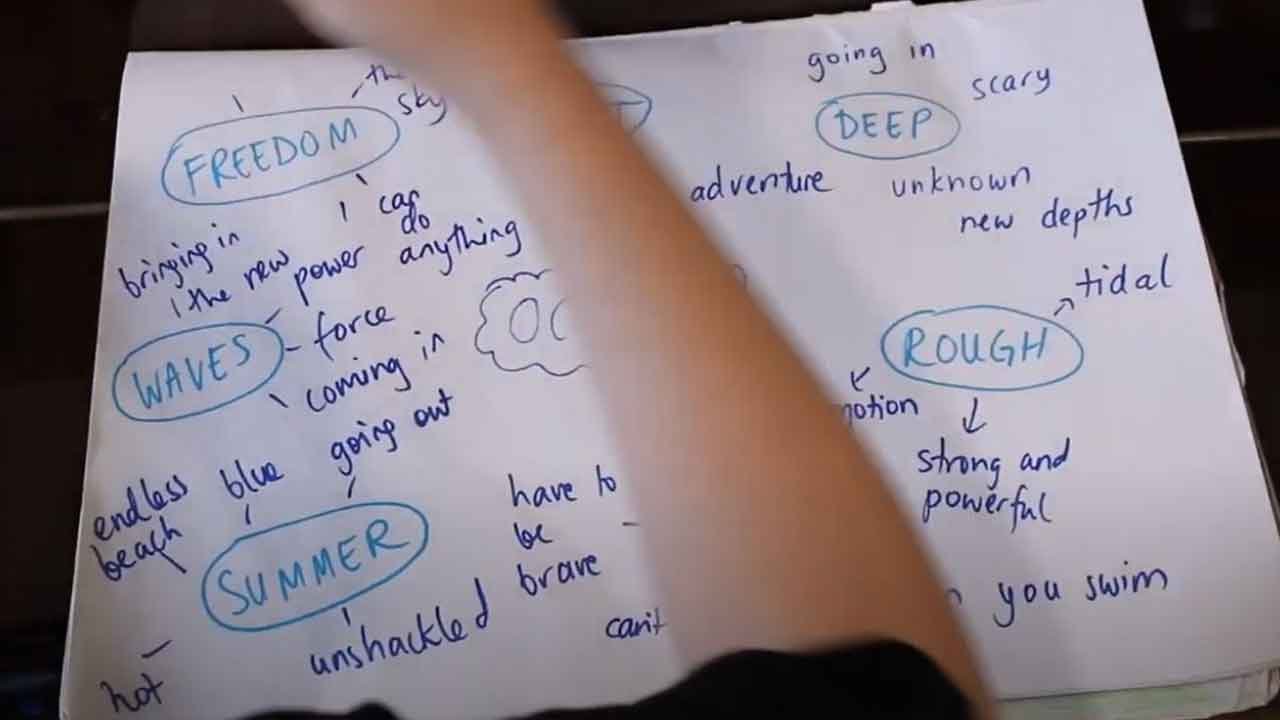 going in
scary
the
sky
FREEDOM
DEEP
adventure
unknown
new depths
I can
do
anything
bringing in
the new
power
tidal
WAVES
force
coming in
going out
ROUGH
strong and
powerful
endless
beach
blue
SUMMER
have to
be
brave
unshackled
can't
you swim
hot